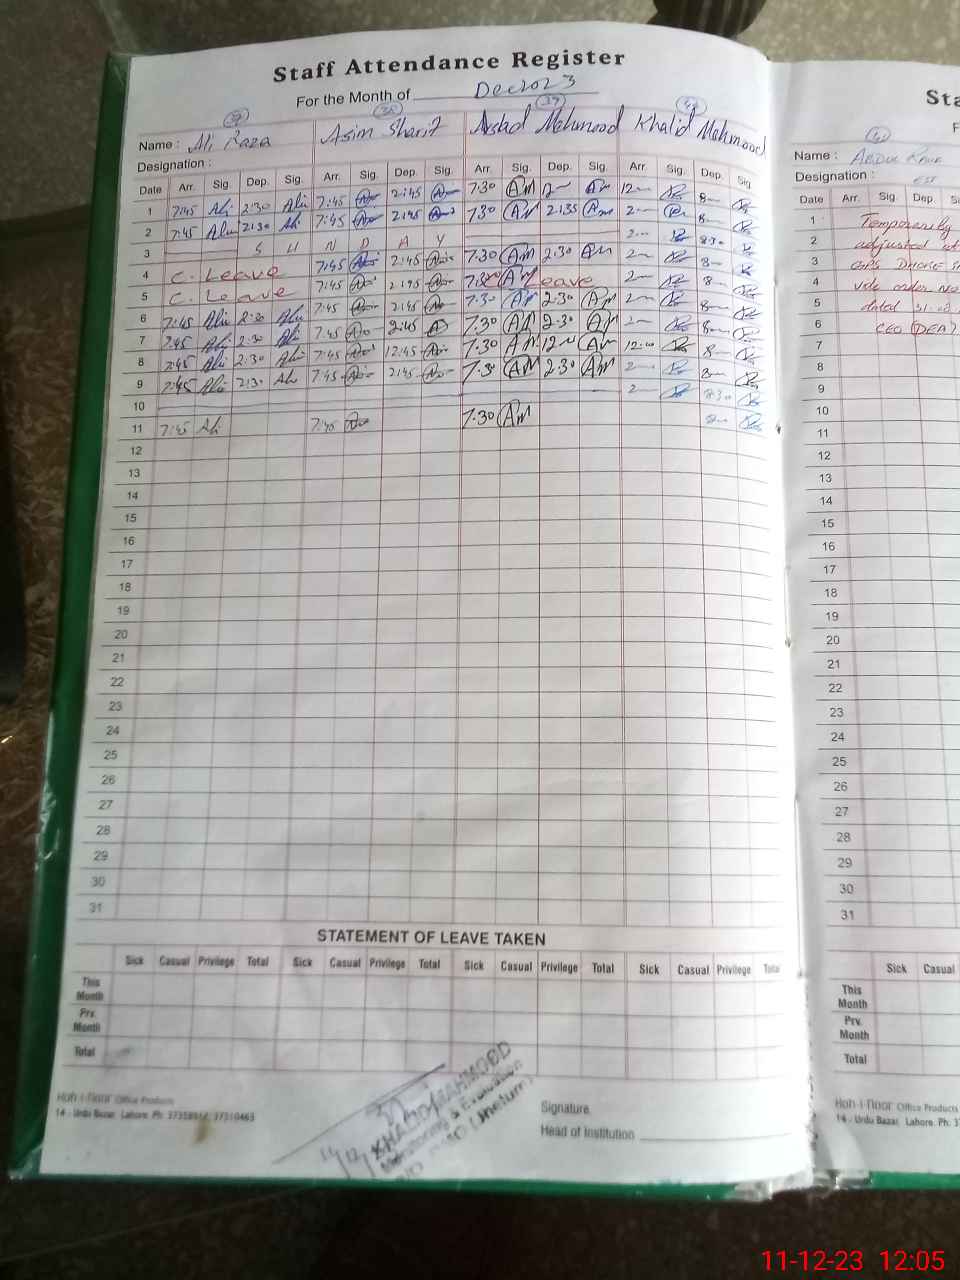 Staff Attendance Register
For the Month of Dec 2023
Name : Ali Raza Asim Sharif Arshad Mehmood Khalid Mehmood
Designation :
Date Arr. Sig. Dep. Sig. Arr. Sig. Dep. Sig. Arr. Sig. Dep. Sig. Arr. Sig. Dep. Sig.
1 7:45 Ali 2:30 Ali 7:45 2:45 7:30 Am 12 Am 12 8
2 7:45 Ali 2:30 Ali 7:45 2:45 7:30 Am 2:35 Am 2 8
3 S U N D A Y 2 8:30
4 C. Leave 7:45 2:45 7:30 Am 2:30 Am 2 8
5 C. Leave 7:45 2:45 7:30 Am Leave 2 8
6 7:45 Ali 2:30 Ali 7:45 2:45 7:30 Am 2:30 Am 2 8
7 7:45 Ali 2:30 Ali 7:45 2:45 7:30 Am 2:30 Am 2 8
8 7:45 Ali 2:30 Ali 7:45 12:45 7:30 Am 12 Am 12:00 8
9 7:45 Ali 2:30 Ali 7:45 2:45 7:30 Am 2:30 Am 2 8
10 2 8:30
11 7:45 Ali 7:45 7:30 Am 8
12
13
14
15
16
17
18
19
20
21
22
23
24
25
26
27
28
29
30
31
STATEMENT OF LEAVE TAKEN
Sick Casual Privilege Total Sick Casual Privilege Total Sick Casual Privilege Total Sick Casual Privilege Total
This Month
Prv. Month
Total
Koh-i-Noor Office Products
14 - Urdu Bazar, Lahore. Ph: 37358912, 37310463
KHALID MAHMOOD
Monitoring & Evaluation
(Jhelum)
Signature
Head of Institution
Sta
F
Name : Abdul
Designation : EST
Date Arr. Sig. Dep.
1 Temporarily
2 adjusted at
3 GPS Dhoke
4 vide order No
5 dated 31-08
6 CEO (DEA)
7
8
9
10
11
12
13
14
15
16
17
18
19
20
21
22
23
24
25
26
27
28
29
30
31
Sick Casual
This Month
Prv. Month
Total
Koh-i-Noor Office Products
14 - Urdu Bazar, Lahore. Ph: 3
11-12-23 12:05